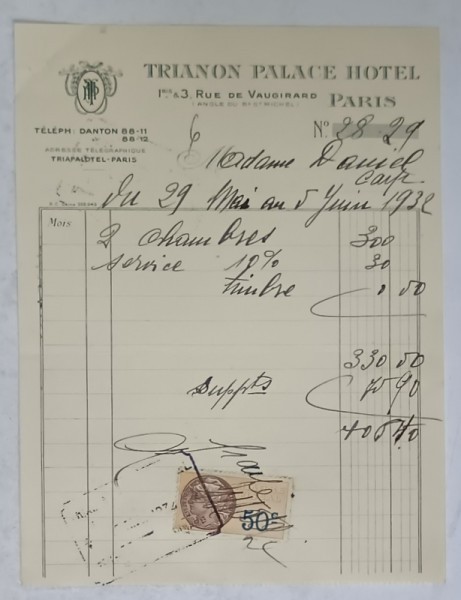 TRIANON PALACE HOTEL
1bis & 3, RUE DE VAUGIRARD
(ANGLE DU BD ST MICHEL)
PARIS
TÉLÉPH: DANTON 88-11
88-12
Nº 28-29
ADRESSE TÉLÉGRAPHIQUE
TRIAPALOTEL-PARIS
Madame Daniel
Du 29 Mai au 5 Juin 1932
Mois:
2 chambres 300
service 10% 30
timbre 0 50
330 50
Suppts 75 90
406 40
50c